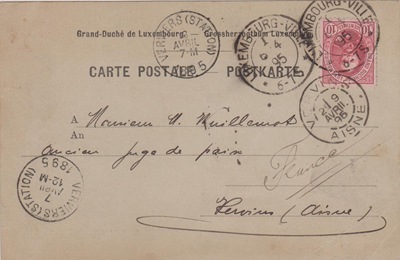 Grand-Duché de Luxembourg. Grossherzogthum Luxemburg.
CARTE POSTALE POSTKARTE
VERVIERS (STATION)
AVRIL
7-M
1895
LUXEMBOURG-VILLE
4
95
6-7S
LUXEMBOURG-VILLE
95
6-7S
10
AVRIL
95
AISNE
À Monsieur V. Meuillemot
An
Ancien Juge de paix
France
Vervins (Aisne)
VERVIERS (STATION)
7
AVRIL
12-M
1895